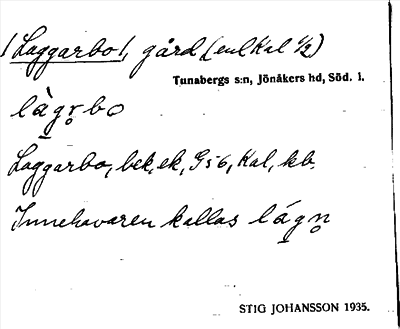 /Laggarbo/, gård (enl Kal 1/2)
Tunabergs s:n, Jönåkers hd, Söd. l.
là̠gr̥bo
Laggarbo, bek, ek, G 5 6, Kal, kb.
Innehavaren kallas lág̠n̥
STIG JOHANSSON 1935.